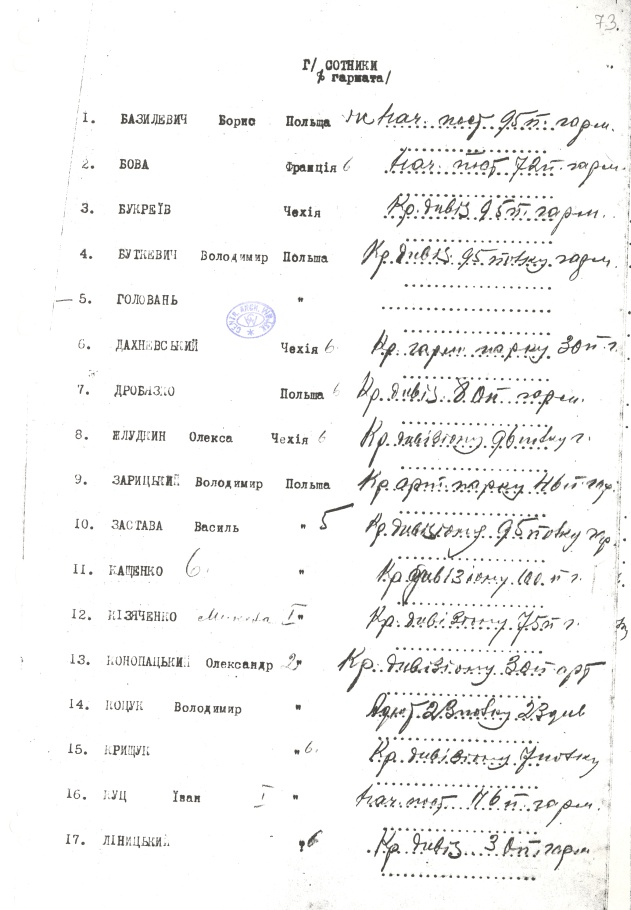 73.
Г/ СОТНИКИ
/гармата/
1. БАЗИЛЕВИЧ Борис Польща нач. пост 95 п. гарм.
2. БОВА Франція б нач. пост 72 п. гарм.
3. БУКРЕЇВ Чехія Кр. дивіз 95 п. гарм.
4. БУТКЕВИЧ Володимир Польща Кр. дивіз 95 полку гарм
5. ГОЛОВАНЬ "
6. ДАХНЕВСЬКИЙ Чехія б Кр. гарм парку 30 п. г.
7. ДРОБЯЗКО Польща б Кр. дивіз 80 п гарм.
8. ЖЛУДКИН Олекса Чехія б Кр. дивізіону 96 полку г.
9. ЗАРИЦЬКИЙ Володимир Польща Кр арт парку 46 п
10. ЗАСТАВА Василь " 5 Кр. дивізіону 95 полку
11. КАЩЕНКО б. " Кр дивізіону 100. п г.
12. КІЗЯЧЕНКО Микола І " Кр. дивізіону 75 п г.
13. КОНОПАЦЬКИЙ Олександр 2 " Кр. дивізіону 30 п арт
14. КОЦУК Володимир " Адют 23 полку 23 див
15. КРИЩУК " б. Кр. дивізіону 7 полку
16. КУЦ Іван І " нач. пост 46 п. гарм.
17. ЛІНИЦЬКИЙ " б Кр. дивіз 30 п гарм